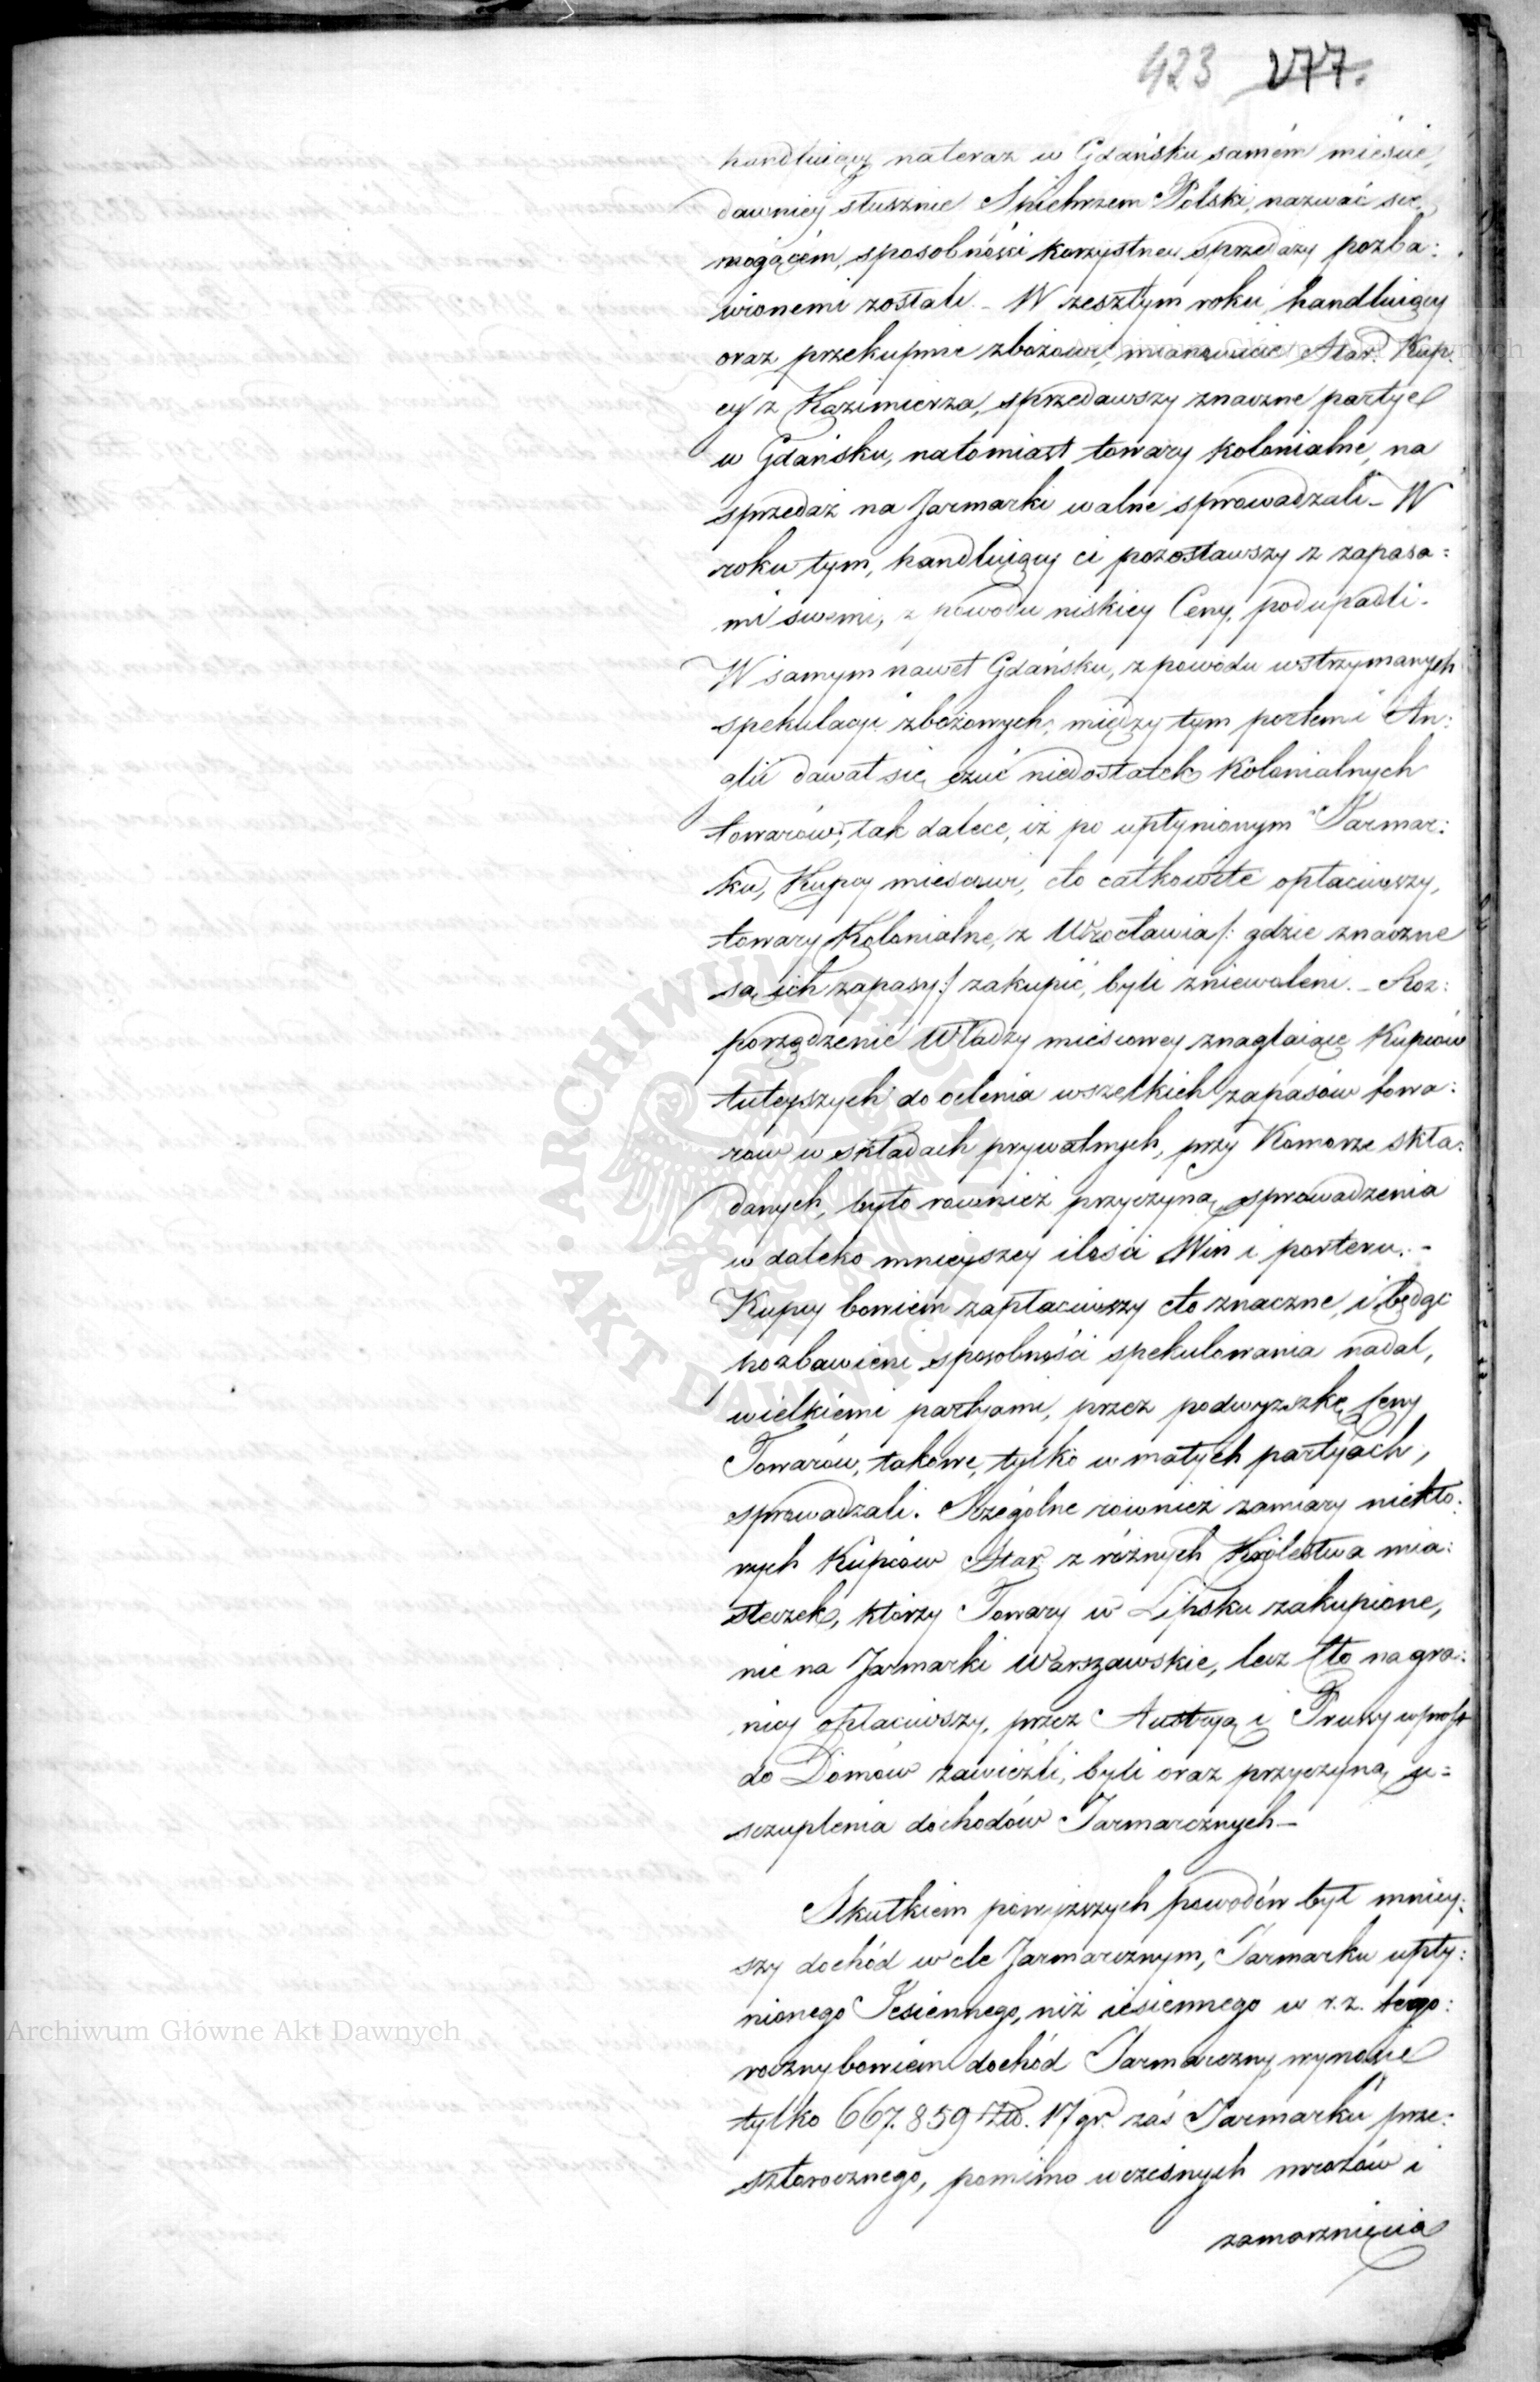 423 277.
handluiący nateraz w Gdańsku samém mieście,
dawniey słusznie Spichrzem Polski, nazwać się
mogącém, sposobności korzystney sprzedaży pozba:
wionemi zostali – W zeszłym roku handluiący
oraz przekupnie zbożowi, mianowicie Star. Kup:
cy z Kazimierza, sprzedawszy znaczne partye
w Gdańsku, natomiast towary kolonialne, na
sprzedaż na Jarmarki walne sprowadzali – W
roku tym, handluiący ci pozostawszy z zapasa:
mi swemi, z powodu niskiey Ceny, podupadli.
W samym nawet Gdańsku, z powodu wstrzymanych
spekulacyi zbożowych, między tym portem i An:
glii dawał się czuć niedostatek Kolonialnych
towarów, tak dalece, iż po upłynionym Jarmar:
ku, Kupcy miescowi, cło całkowite opłaciwszy,
towary Kolonialne, z Wrocławia /: gdzie znaczne
są ich zapasy :/ zakupić, byli zniewoleni. – Roz:
porządzenie Władzy miescowey znaglaiące Kupców
tuteyszych do oclenia wszelkich zapasów towa:
rów w składach prywatnych, przy Komorze skła:
danych, było również przyczyną, sprowadzenia
w daleko mnieyszey ilości Win i porteru. –
Kupcy bowiem zapłaciwszy cło znaczne, i będąc
pozbawieni sposobności spekulowania nadal,
wielkiemi partyami, przez podwyższkę Ceny
Towarów, takowe, tylko w małych partyach,
sprowadzali. Szczególne również zamiary niektó:
rych Kupców Star. z różnych Królestwa mia:
steczek, którzy Towary w Lipsku zakupione,
nie na Jarmarki Warszawskie, lecz cło na gra:
nicy opłaciwszy, przez Austryą i Prussy wprost
do Domów zawieźli, byli oraz przyczyną u=
szczuplenia dochodów Jarmarcznych –
Skutkiem powyższych powodów był mniey:
szy dochód w cle Jarmarcznym, Jarmarku upły:
nionego Jesiennego, niż iesiennego w r. z. tego:
roczny bowiem dochód Jarmarczny wynosie
tylko 667.859 Złł. 17 gr. zaś Jarmarku prze:
szłorocznego, pomimo wcześnych mrozów i
zamarznięcia
Archiwum Główne Akt Dawnych
Archiwum Główne Akt Dawnych
ARCHIWUM GŁÓWNE AKT DAWNYCH